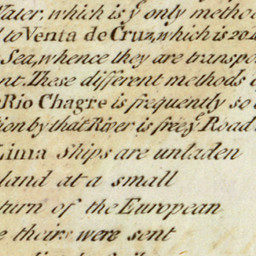 Water, which is yͤ only metho
to Venta de Cruz, which is 20
Sea, whence they are transpo
nt. These different methods
Rio Chagre is frequently so
tion by that River is free, yͤ Road
Lima Ships are unladen
land at a small
turn of the European
e theirs were sent